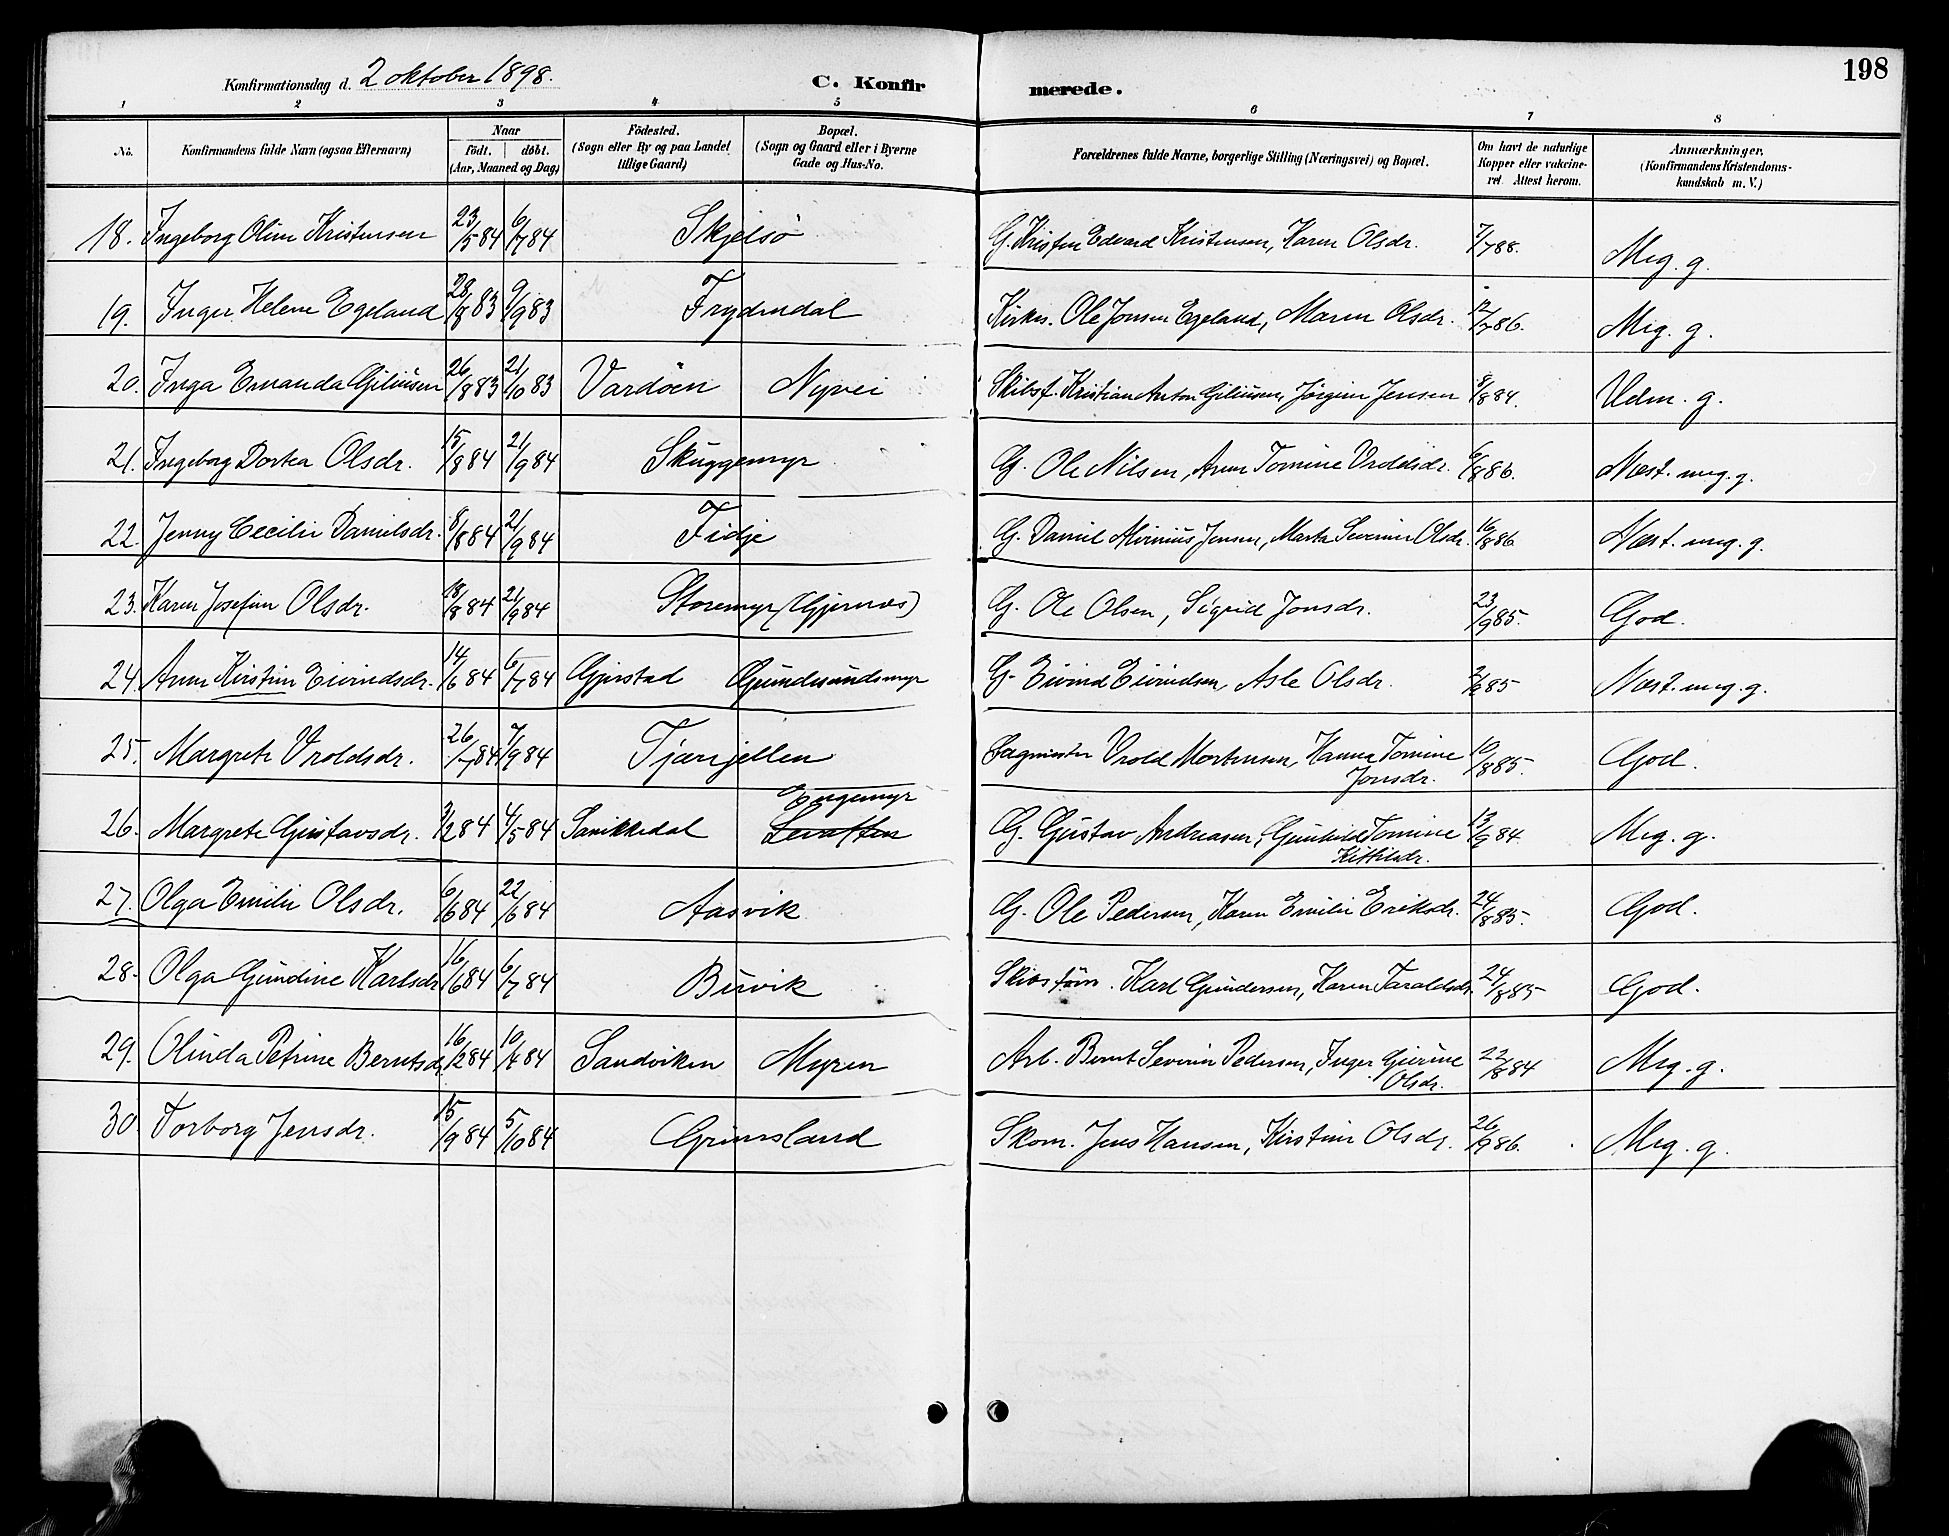 198
Konfirmationsdag d. 2 oktober 1898. C. Konfirmerede.
1 2 3 4 5 6 7 8
No. Konfirmandens fulde Navn (ogsaa Efternavn) Naar födt. döbt. (Aar, Maaned og Dag) Födested. (Sogn eller By og paa Landet tillige Gaard) Bopæl. (Sogn og Gaard eller i Byerne Gade og Hus-No. Forældrenes fulde Navne, borgerlige Stilling (Næringsvei) og Bopæl. Om havt de naturlige Kopper eller vakcineret. Attest herom. Anmærkninger. (Konfirmandens Kristendomskundskab m. V.)
18. Ingeborg Oline Kristensen 23/5 84 6/7 84 Skjelsö G. Kristen Edvard Kristensen, Karen Olsdr. 7/7 88. Meg. g.
19. Inger Helene Egeland 28/8 83 9/9 83 Frydendal Kirkes. Ole Jonsen Egeland, Maren Olsdr. 12/7 86. Meg. g.
20. Inga Emanda Gjeliusen 26/8 83 21/10 83 Vardöen Nyvei Skibsf. Kristian Anton Gjeliusen, Jörgine Jensen 8/8 84. Udm. g.
21. Ingeborg Dortea Olsdr. 15/8 84 21/9 84 Skuggemyr G. Ole Nilsen, Anne Tomine Vroldsdr. 6/8 86. Næst. meg. g.
22. Jenny Cecilie Danielsdr. 8/8 84 21/9 84 Fidje G. Daniel Jensen, Marta Severine Olsdr. 16/8 86 Næst. meg. g.
23. Karen Josefine Olsdr. 18/8 84 21/9 84 Storemyr (Gjernæs) G. Ole Olsen, Sigrid Jonsdr. 23/9 85. God.
24. Anne Kirstine Eivindsdr. 14/6 84 6/7 84 Gjerstad Gundersundsmyr G. Eivind Eivindsen, Asle Olsdr. 85 Næst. meg. g.
25. Margrete Vroldsdr. 26/7 84 7/9 84 Tjærefjellen Sagmester Vrold Mortensen, Hanna Tomine Jonsdr. 10/8 85. God.
26. Margrete Gustavsdr. 3/2 84 4/5 84 Sanikkedal Engemyr G. Gustav Andreasen, Gunhild Tomine Kittilsdr. 13/9 84 Meg. g.
27. Olga Emilie Olsdr. 6/6 84 22/6 84 Aasvik G. Ole Pedersen, Karen Emilie Eriksdr. 24/8 85. God.
28. Olga Gundine Karlsdr 16/6 84 6/7 84 Burvik Skibstöm. Karl Gundersen, Karen Taraldsdr. 24/8 85 God.
29. Olinda Petrine Berntsdr. 16/2 84 10/4 84 Sandviken Myren Arb. Bernt Severin Pedersen, Inger Gurine Olsdr. 22/8 84 Meg. g.
30 Torborg Jensdr. 15/9 84 5/10 84 Grimsland Skom. Jens Hansen, Kirstine Olsdr. 26/9 86. Meg. g.